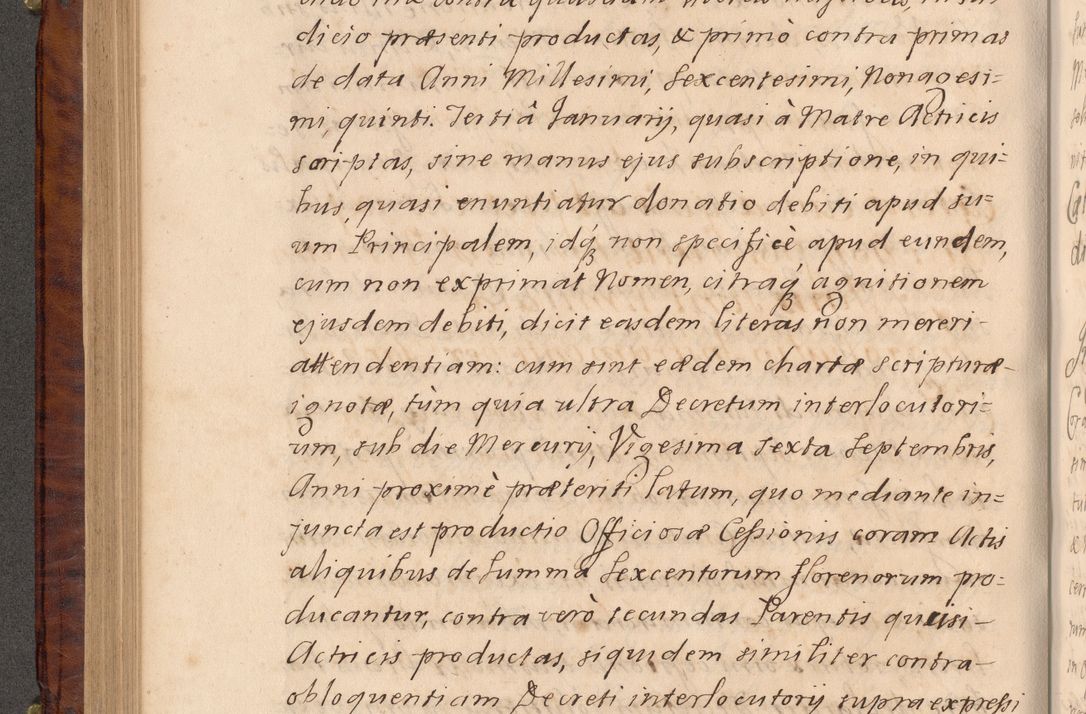 dicio præsenti productas, & primò contra primas
de data Anni Millesimi, Sexcentesimi, Nonagesi=
mi, quinti. Tertiâ Januarij, quasi à Matre Actricis
scriptas, sine manus ejus subscriptione, in qui=
bus, quasi enuntiatur donatio debiti apud su=
um Principalem, idq́ non specificè apud eundem,
cum non exprimat Nomen, citraq́ agnitionem
ejusdem debiti, dicit easdem literas non mereri-
attendentiam: cum sint eædem chartæ scripturæ-
ignotæ, tùm quia ultra Decretum interlocutori=
um, sub die Mercurij, Vigesima sexta Septembris,
Anni proximè præteriti latum, quo mediante in=
juncta est productio Officiosæ Cessionis coram Actis
aliquibus de summa Sexcentorum florenorum pro=
ducantur, contra verò secundas Parentis quasi-
Actricis productas, siquidem similiter contra-
obloquentiam Decreti interlocutorij supra expressi